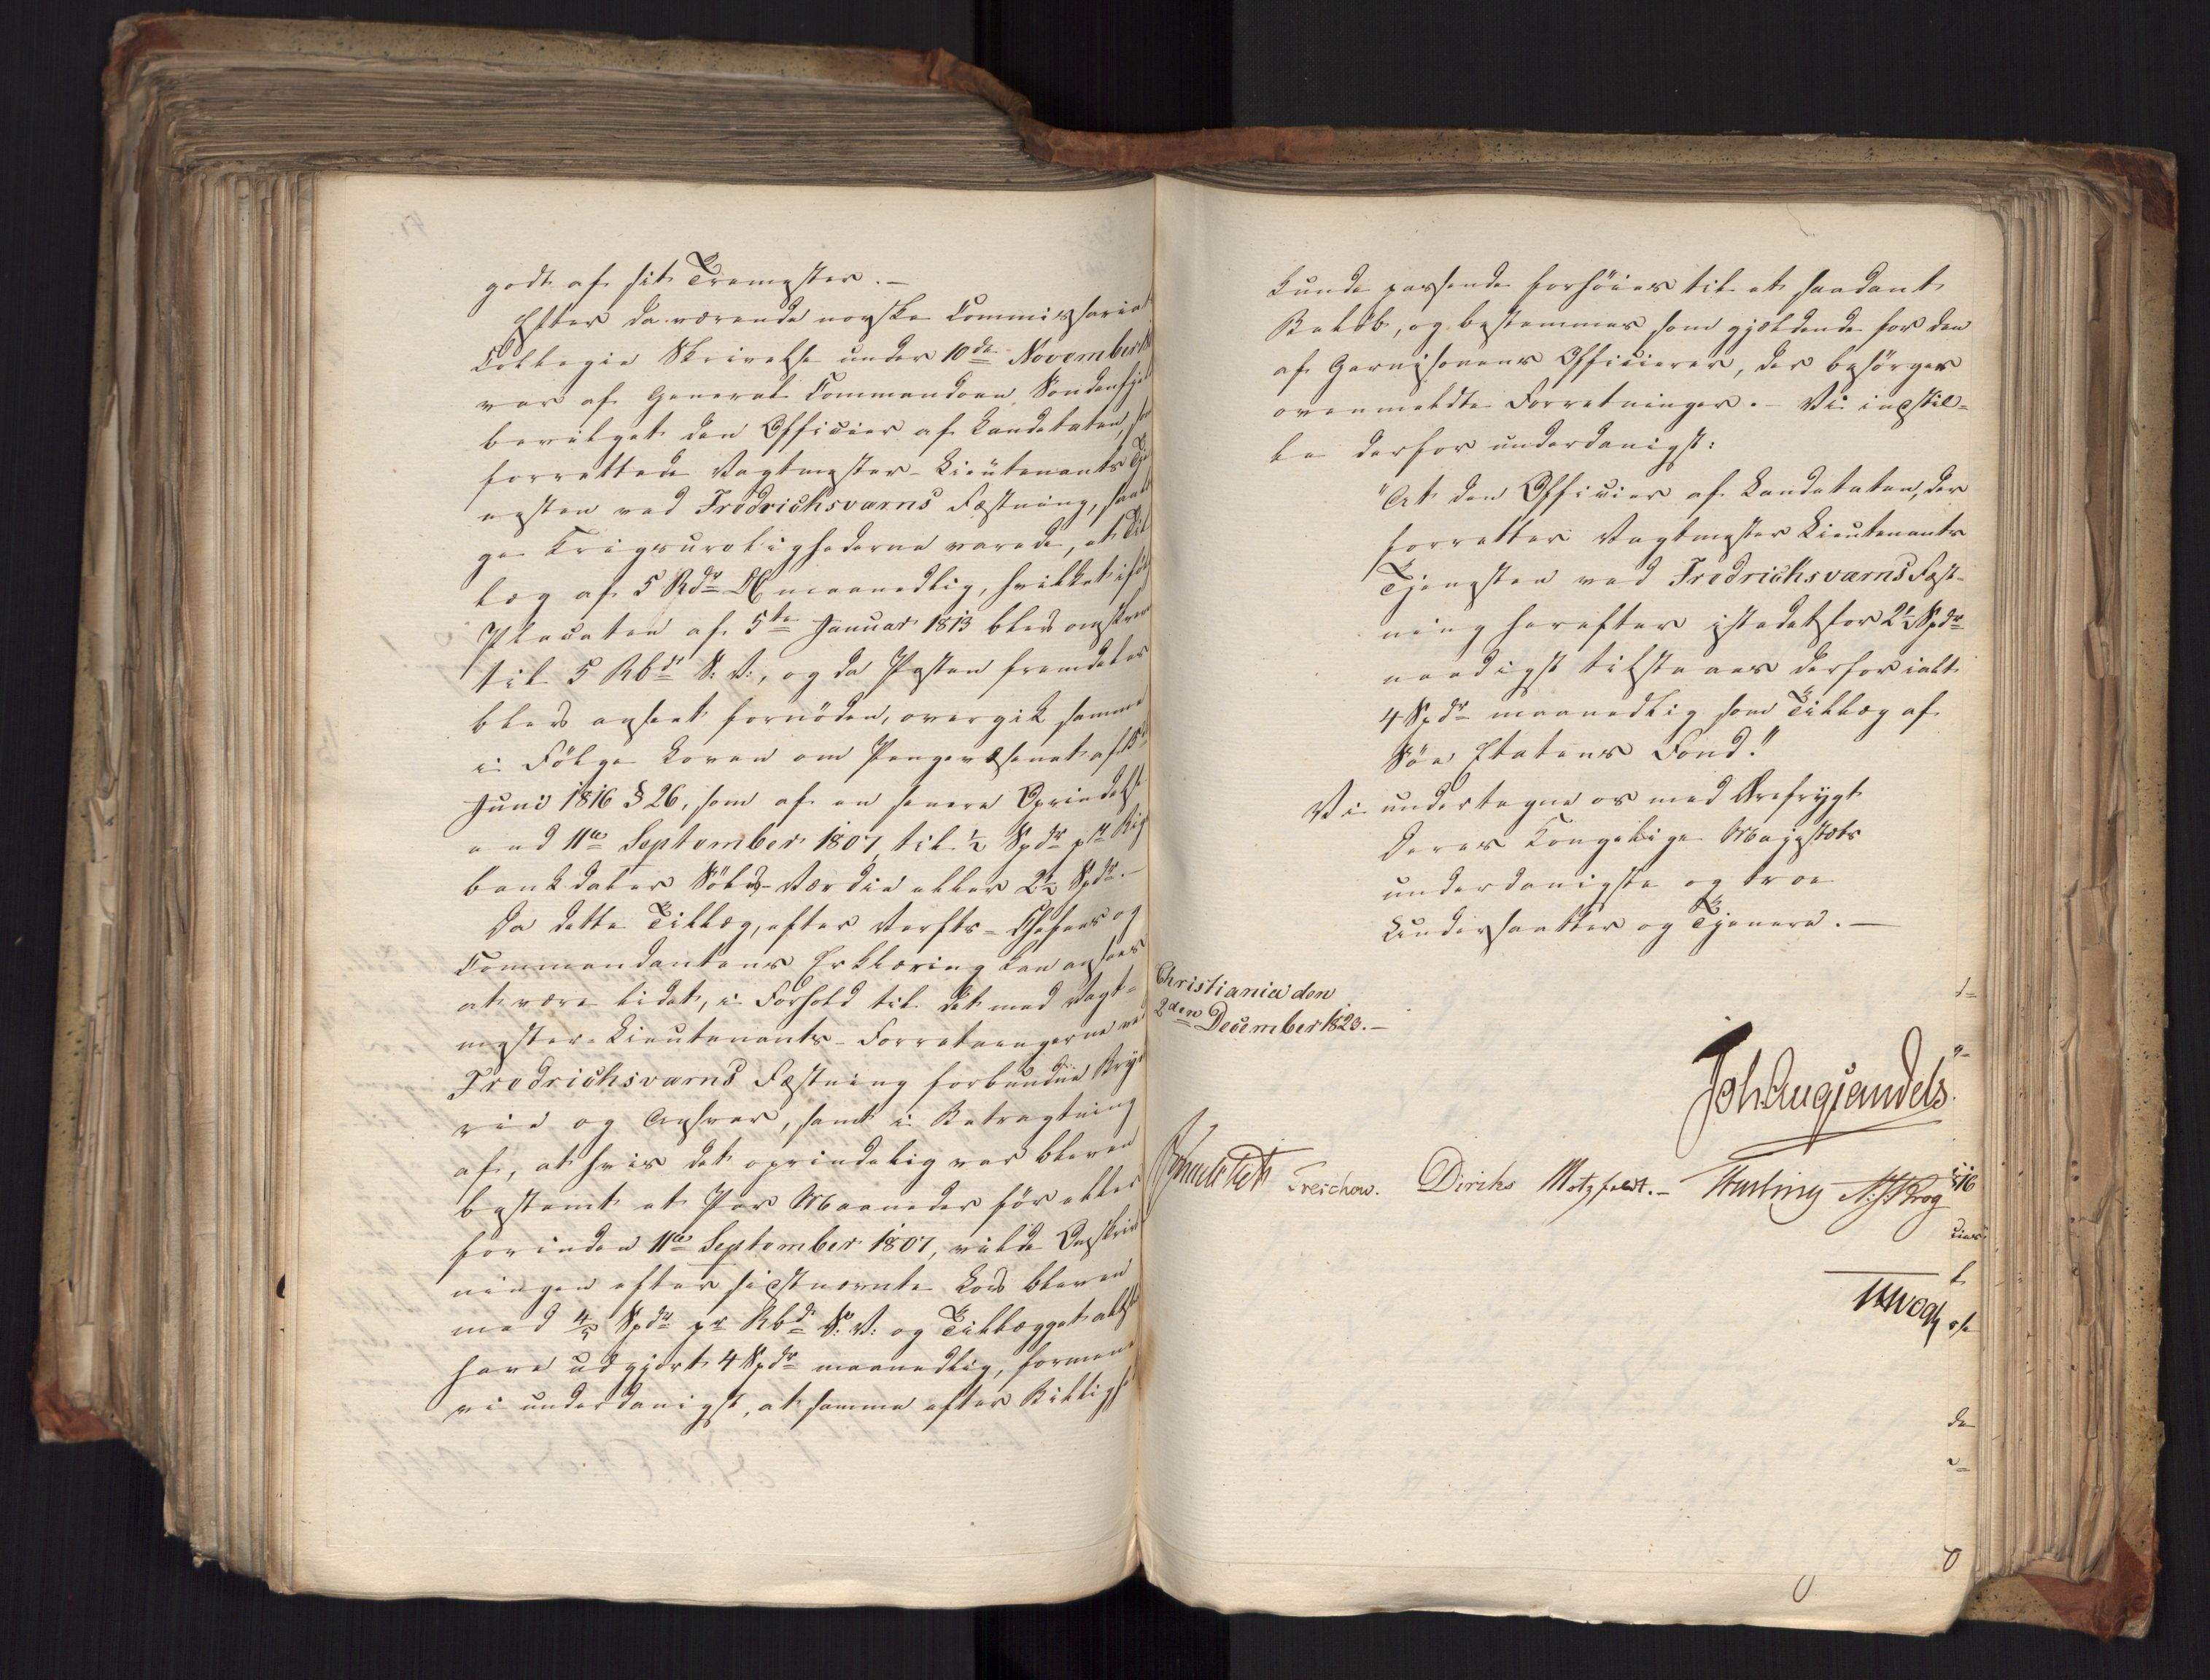 godt af sit Tremester. —
Efter da værende norske Commissariat
Collegie Skrivelse under 10de November
var af General Commandoen Söndenfjel
bevilget den Officier af Landetaten, som
forrettede Vagtmester-Lieutenants Tje
nesten ved Fredrichsværns Fæstning, saal
ge Krigsurolighederne varede, et Til
læg af 5 Rdr DC maanedlig, hvilket iföl
Placaten af 5te Januar 1813 blev omskrev
til 5 Rbdr S: V:, og da Posten fremdeles
blev anseet fornöden, overgik samme
i Fölge Loven om Pengevæsenet af 13
Juni 1816 § 26, som af en senere Oprindelse
end 11te September 1807, til ½ Spdr pr Rigs
bankdaler Sölv-Værdie eller 2½ Spdr. —
Da dette Tillæg, efter Verfts-Chefens og
Commandantens Erklæring kan ansees
at være lidet, i Forhold til det med Vagt-
mester-Lieutenants-Forretningerne ved
Fredrichsværns Fæstning forbundne Bryd
rie og Ansvar, samt i Betragtning
af, at hvis det oprindelig var bleven
bestemt et Par Maaneder för eller
forinden 11te September 1807, vilde Omskriv
ningen efter sidstnævnte Lov bleven
med 4/5 Spdr pr Rbdr S: V: og Tillægget altsaa
have udgjort 4 Spdr maanedlig, formene
vi underdanigst, at samme efter Billighed
kunde passende forhöies til et saadant
Belöb, og bestemmes som gjældende for den
af Garnisonens Officierer, der besörger
ovenmeldte Forretninger. — Vi indstil-
le derfor underdanigst:
"At den Officier af Landetaten, der
forretter Vagtmester Lieutenants
Tjenesten ved Fredrichsværns Fæst-
ning herefter istedetfor 2½ Spdr
naadigst tilstaaes derfor ialt
4 Spdr maanedlig som Tillæg af
Söe Etatens Fond."
Vi undertegne os med Ærefrygt
Deres Kongelige Majestæts
underdanigste og troe
Undersaatter og Tjenere. —
Christiania den
2den December 1823. —
Joh. Aug. Sandels.
Treschow. Diriks Motzfeldt. — N: J: Krog